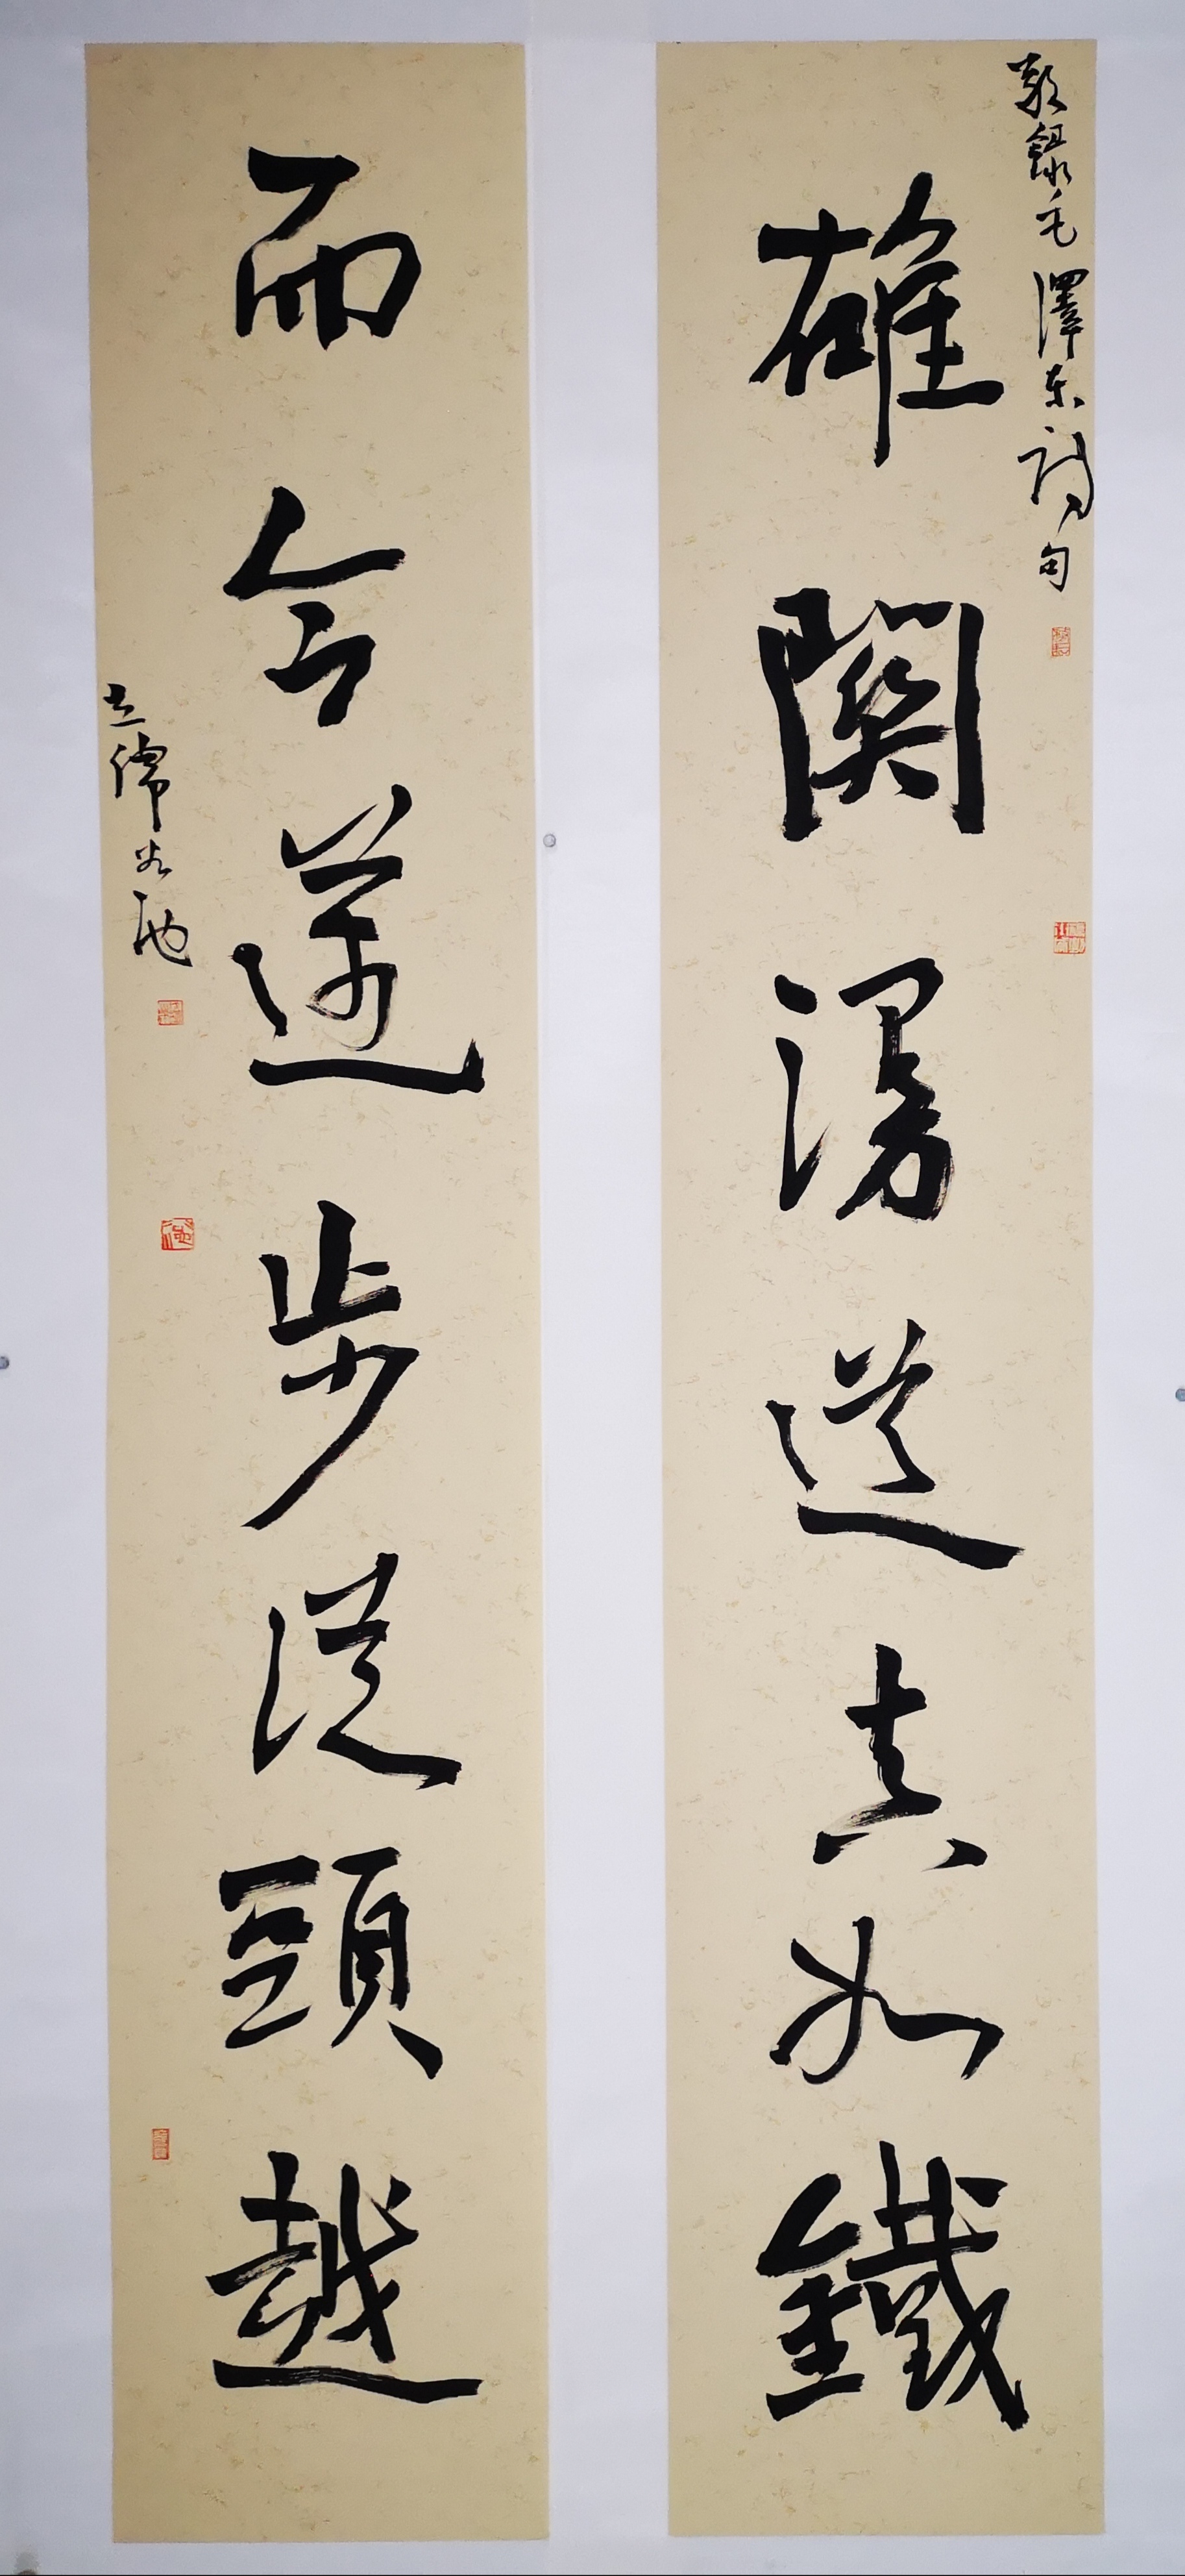 敬錄毛澤东詩句
雄關漫道真如鐵
而今邁步從頭越